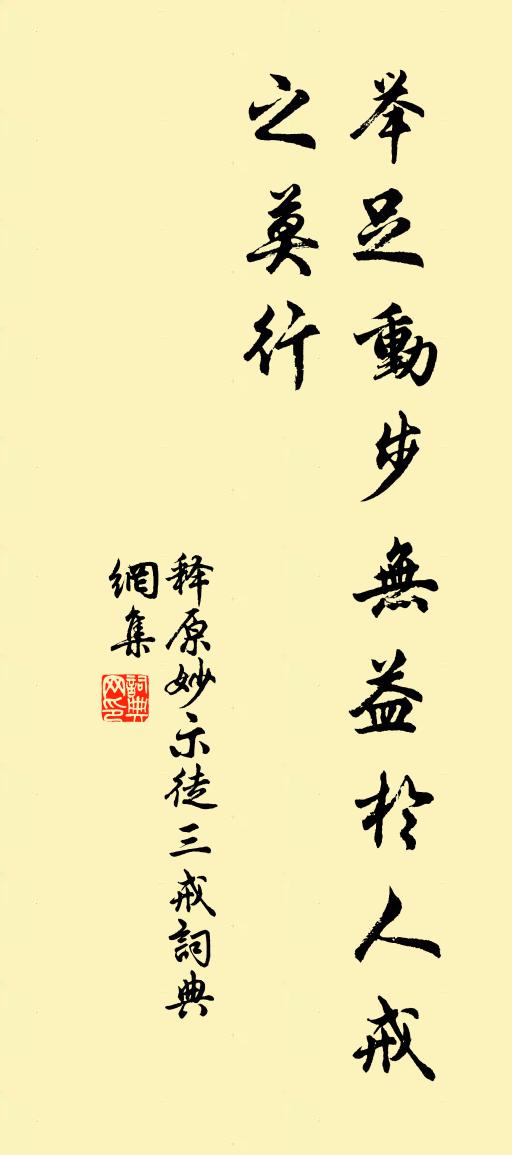 举足動步無益於人戒
之莫行
释原妙示徒三戒詞典
網集
詞典网印